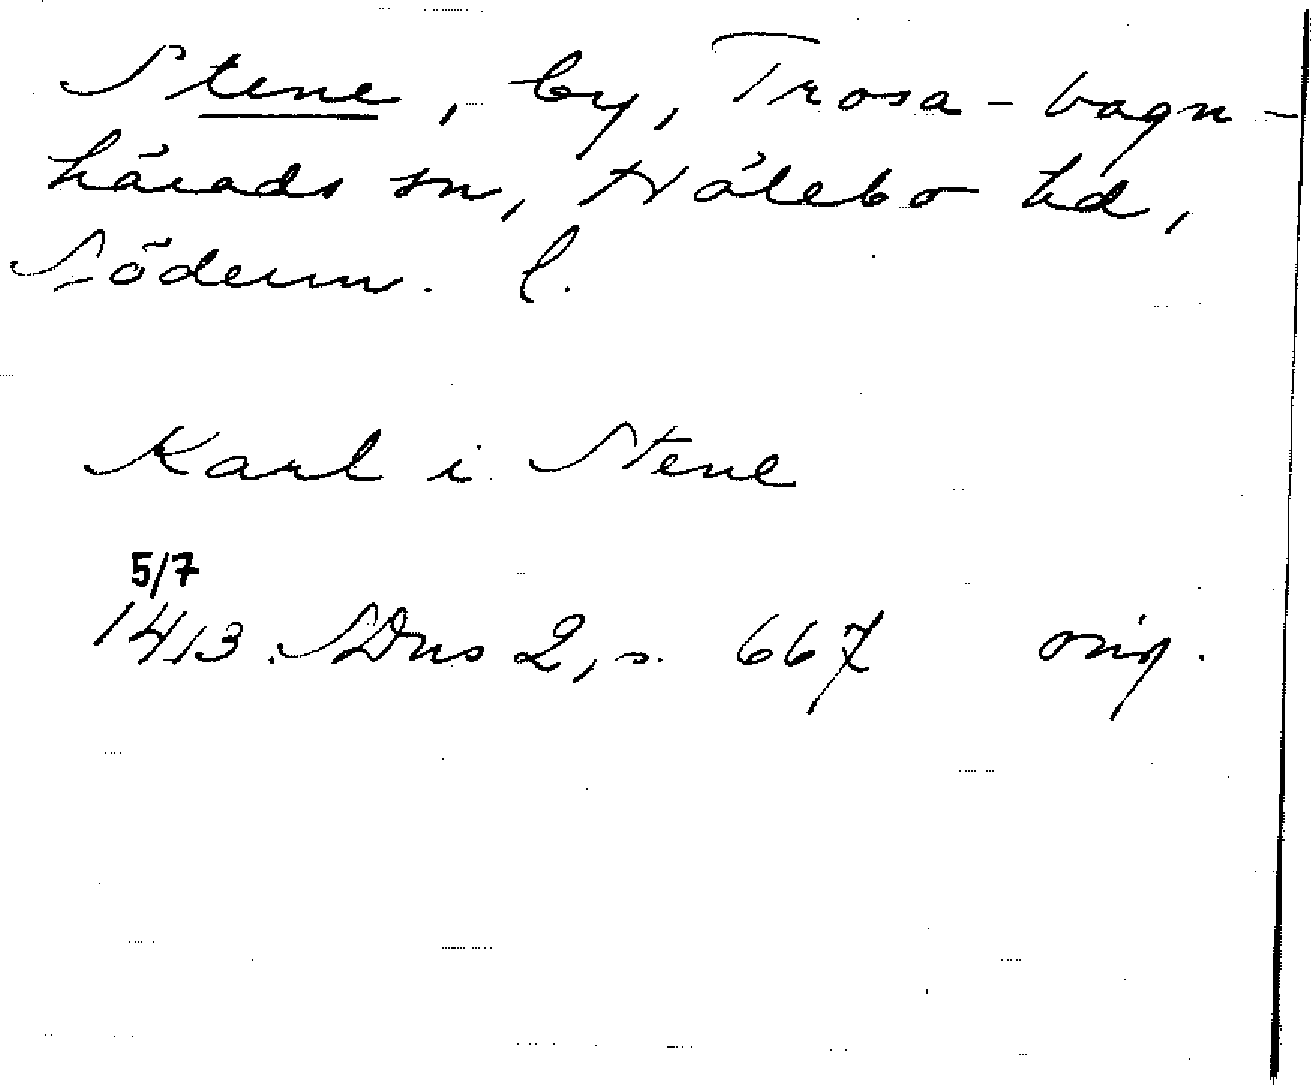 Stene, by, Trosa-vagn-
härads sn, Hölebo hd,
Söderm. l.
Karl i Stene
5/7
1413 SDns 2, s. 667 orig.